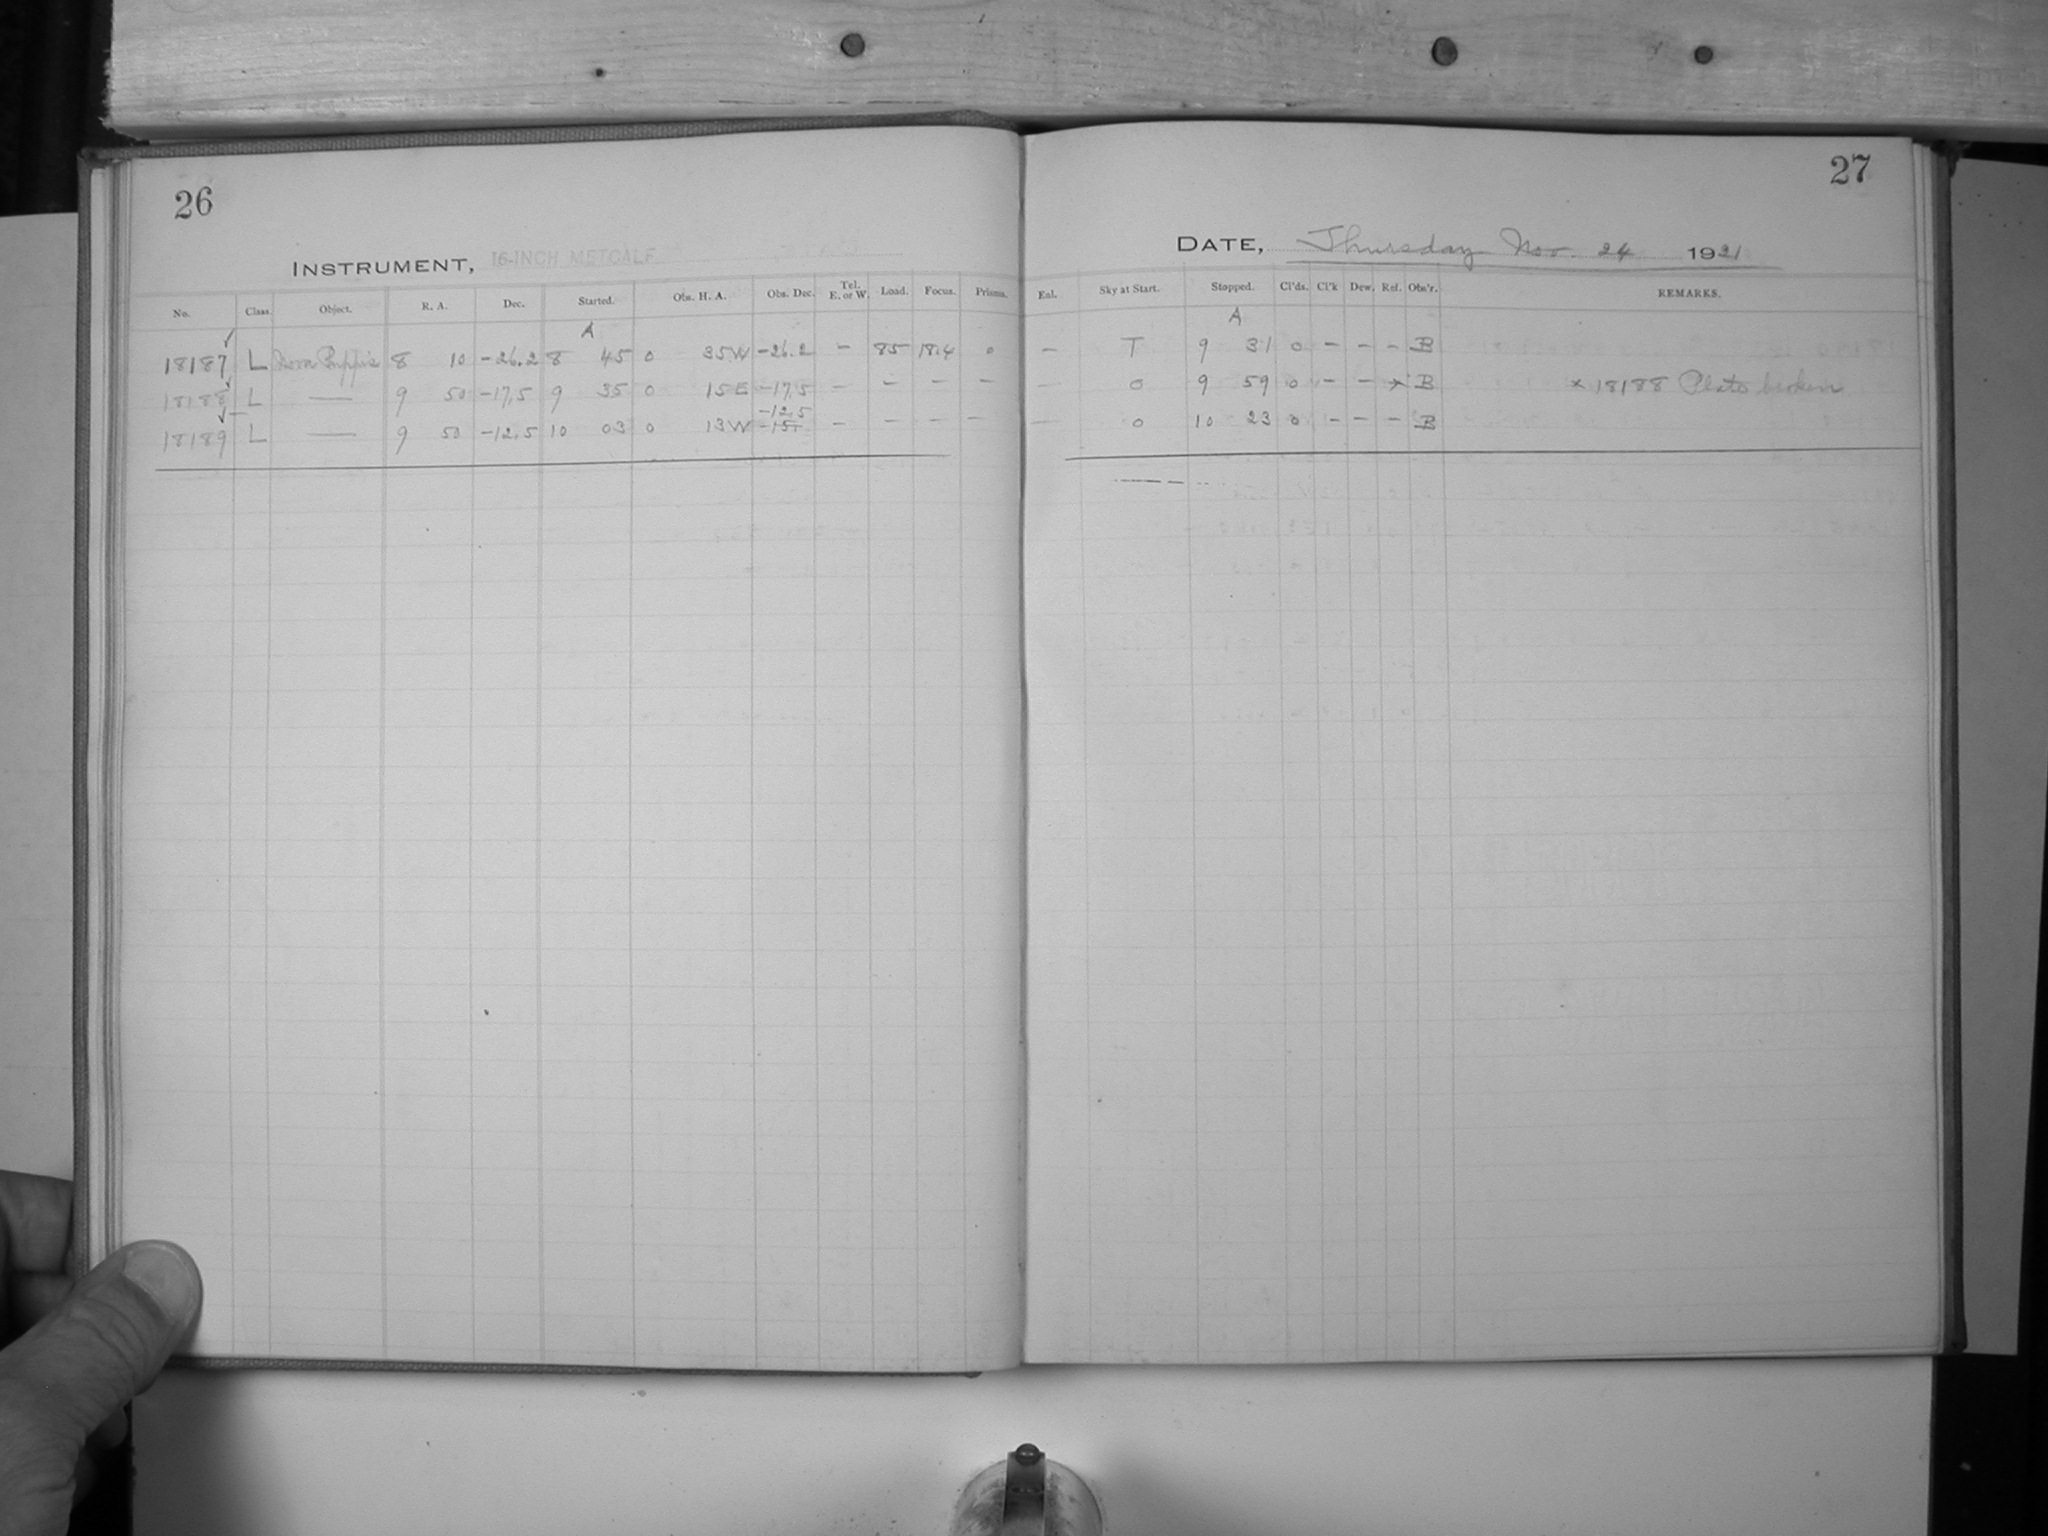 26
27
INSTRUMENT, 16-INCH METCALF
DATE, Thursday Nov. 24 1921
No. Class. Object. R. A. Dec. Started. Obs. H. A. Obs. Dec. Tel. E. or W. Load. Focus. Prisms. Enl. Sky at Start. Stopped. Cl'ds. Cl'k Dew. Ref. Obs'r. REMARKS.
A A
18187 L Nova Puppis 8 10 -26.2 8 45 0 35W -26.2 - 85 18.4 0 - T 9 31 0 - - - B
18188 L — 9 50 -17.5 9 35 0 15E -17.5 - - - - - 0 9 59 0 - - x B x 18188 Plate broken
-12.5
18189 L — 9 50 -12.5 10 03 0 13W -15 - - - - - 0 10 23 0 - - - B